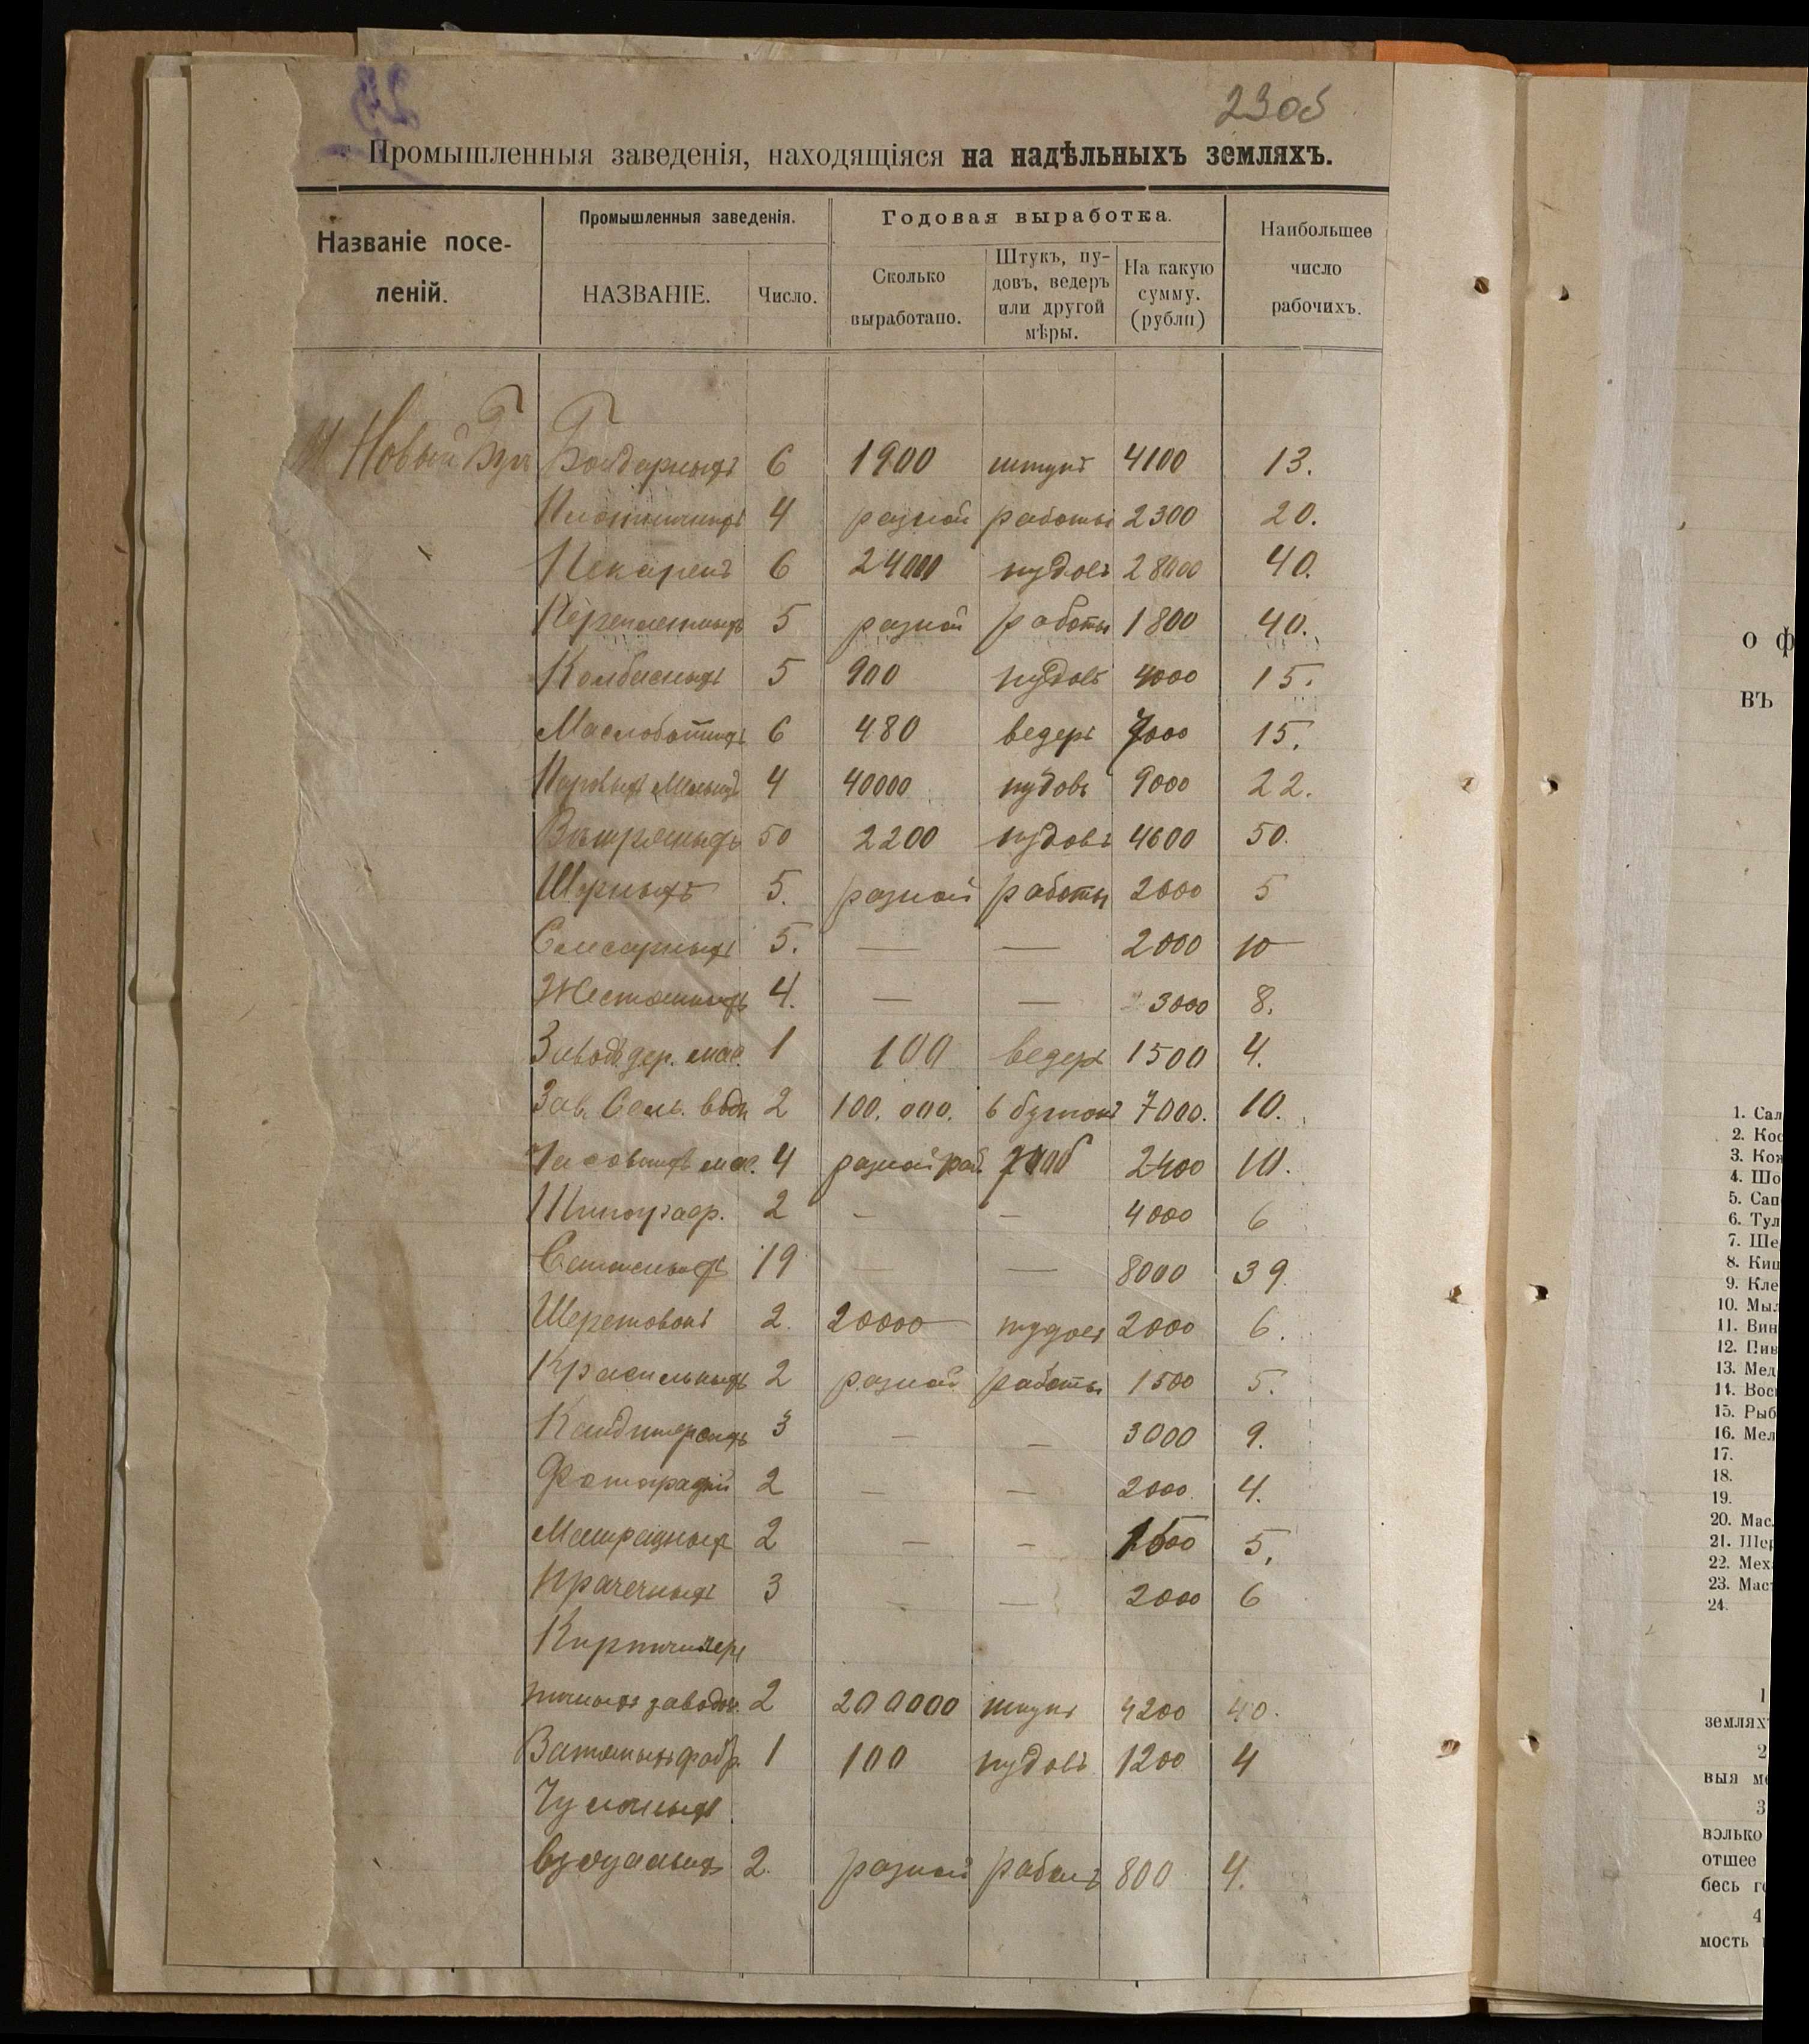 23об
Промышленныя заведенія, находящіяся на надѣльныхъ земляхъ.
Названіе посе-
леній.
Промышленныя заведенія.
НАЗВАНІЕ.
Число.
Годовая выработка.
Сколько
выработано.
Штукъ, пу-
довъ, ведеръ
или другой
мѣры.
На какую
сумму.
(рубли)
Наибольшее
число
рабочихъ.
М Новый Буг Бондарныхъ 6 1900 штукъ 4100 13.
Плотничныхъ 4 разной работы 2300 20.
Пекарень 6 24000 пудовъ 28000 40.
Переплетныхъ 5 разной работы 1800 40.
Колбасныхъ 5 900 пудовъ 4000 15.
Маслобойныхъ 6 480 ведеръ 7000 15.
Паровыхъ Мельниц 4 40000 пудовъ 9000 22.
Вѣтряныхъ 50 2200 пудовъ 4600 50.
Шорныхъ 5. разной работы 2000 5
Слесарныхъ 5. — — 2000 10
Жестяныхъ 4. — — 3000 8.
Заводъ дер. мас. 1 100 ведеръ 1500 4.
Зав. Сель. воды 2 100.000. бутокъ 7000. 10.
Часовыхъ мас. 4 разной раб. 2400 10.
Типограф. 2 — — 4000 6
19 — — 8000 39.
Шеретовокъ 2. 20000 пудовъ 2000 6.
Красильныхъ 2 разной работы 1500 5.
Кандитерскихъ 3 — — 3000 9.
Фотографій 2 — — 2000. 4.
Матрацныхъ 2 — — 1500 5,
Прачечныхъ 3 — — 2000 6
заводовъ. 2 200000 штукъ 4200 40.
Ватныхъ фабр. 1 100 пудовъ 1200 4
Чулочныхъ
2. разной работъ 800 4.
о ф
въ
1. Сал
2. Кос
3. Кож
4. Шо
5. Сап
6. Тул
7. Ше
8. Киш
9. Кле
10. Мыл
11. Вин
12. Пив
13. Мед
14. Вос
15. Рыб
16. Мел
17.
18.
19.
20. Мас.
21. Шер
22. Мех
23. Мас
24.
1
земляхъ
2
выя ме
3
волько
отшее
бесь го
4
мость